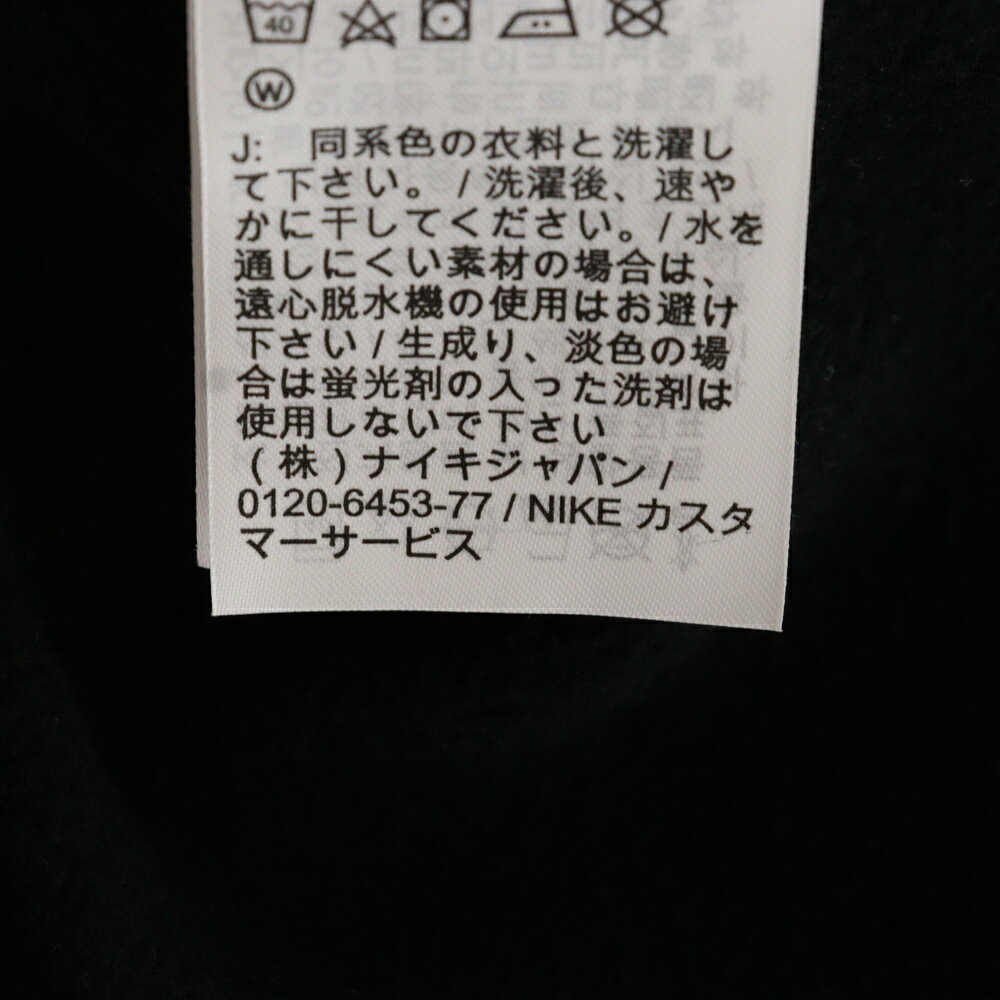 40
W
J: 同系色の衣料と洗濯し
て下さい。 / 洗濯後、速や
かに干してください。/ 水を
通しにくい素材の場合は、
遠心脱水機の使用はお避け
下さい / 生成り、淡色の場
合は蛍光剤の入った洗剤は
使用しないで下さい
(株) ナイキジャパン /
0120-6453-77 / NIKE カスタ
マーサービス